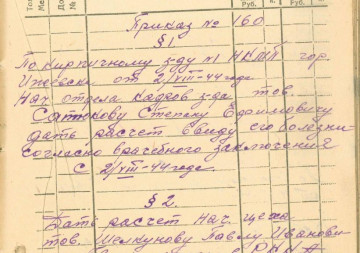 Руб. к. Руб.
Приказ № 160
§ 1
По кирпичному з-ду №1 НКМП гор.
Ижевска от 2/VIII-44 года
Нач отдела кадров з-да тов.
Саткову Степану Ефимовичу
дать расчет ввиду его болезни
согласно врачебного заключения
с 2/VIII-44 года.
§ 2
Дать расчет нач. цеха
тов. Шелкунову Павлу Иванови